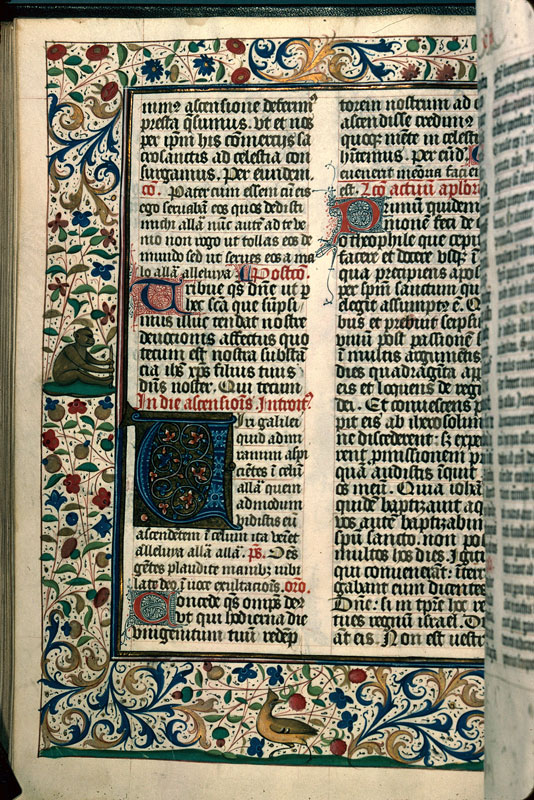 nunc ascensione deferim9
presta qsumus. vt et nos
per ipm his comercijs sa
crosanctis ad celestia con
surgamus. Per eundem.
co. Pater cum essem cu eis
ego seruaba eos quos dedisti
michi alla nuc aute ad te ve
nio non rogo ut tollas eos de
mundo sed ut serues eos a ma
lo alla alleluya Postco.
Tribue qs dne ut p
hec sca que supsi
mus illuc tendat nostre
deuocionis affectus quo
tecum est nostra substan
cia ihs xps filius tuus
dns noster. Qui tecum
In die ascensionis. Introit9
Uiri galilei
quid admi
ramini aspi
cietes i celu
alla quem
admodum
vidistis eu
ascendetem i celum ita veniet
alleluya alla alla. ps. Oes
getes plaudite manib9 iubi
late deo i uoce exultacionis. oro.
Concede qs omps deus
vt qui hodierna die
vnigenitum tuu redep
torem nostrum ad c
ascendisse credim9
quoq9 mete in celesti
hitemus. Per eund.
est. Lco actuu aplor
Primum quidem
monem feci de
o theophile que cepit
facere et docere vsq i
qua precipiens apos
per spm sanctum qu
elegit assumpt9 e. Q
bus et prebuit seipsu
viuu post passione s
i multis argumetis
dies quadragita ap
eis et loquens de reg
dei. Et conuescens p
pit eis ab iherosolim
ne discederent: s; exp
rent pmissionem p
qua audistis iquit
os meu. Quia ioha
quide baptizauit aq
vos aute baptizabim
spu sancto. non po
multos hos dies. Igit
qui conuenerat: iter
gabant eum dicentes
Dne: si in tpre hoc re
tues regnum israel. D
at eis. Non est uestr